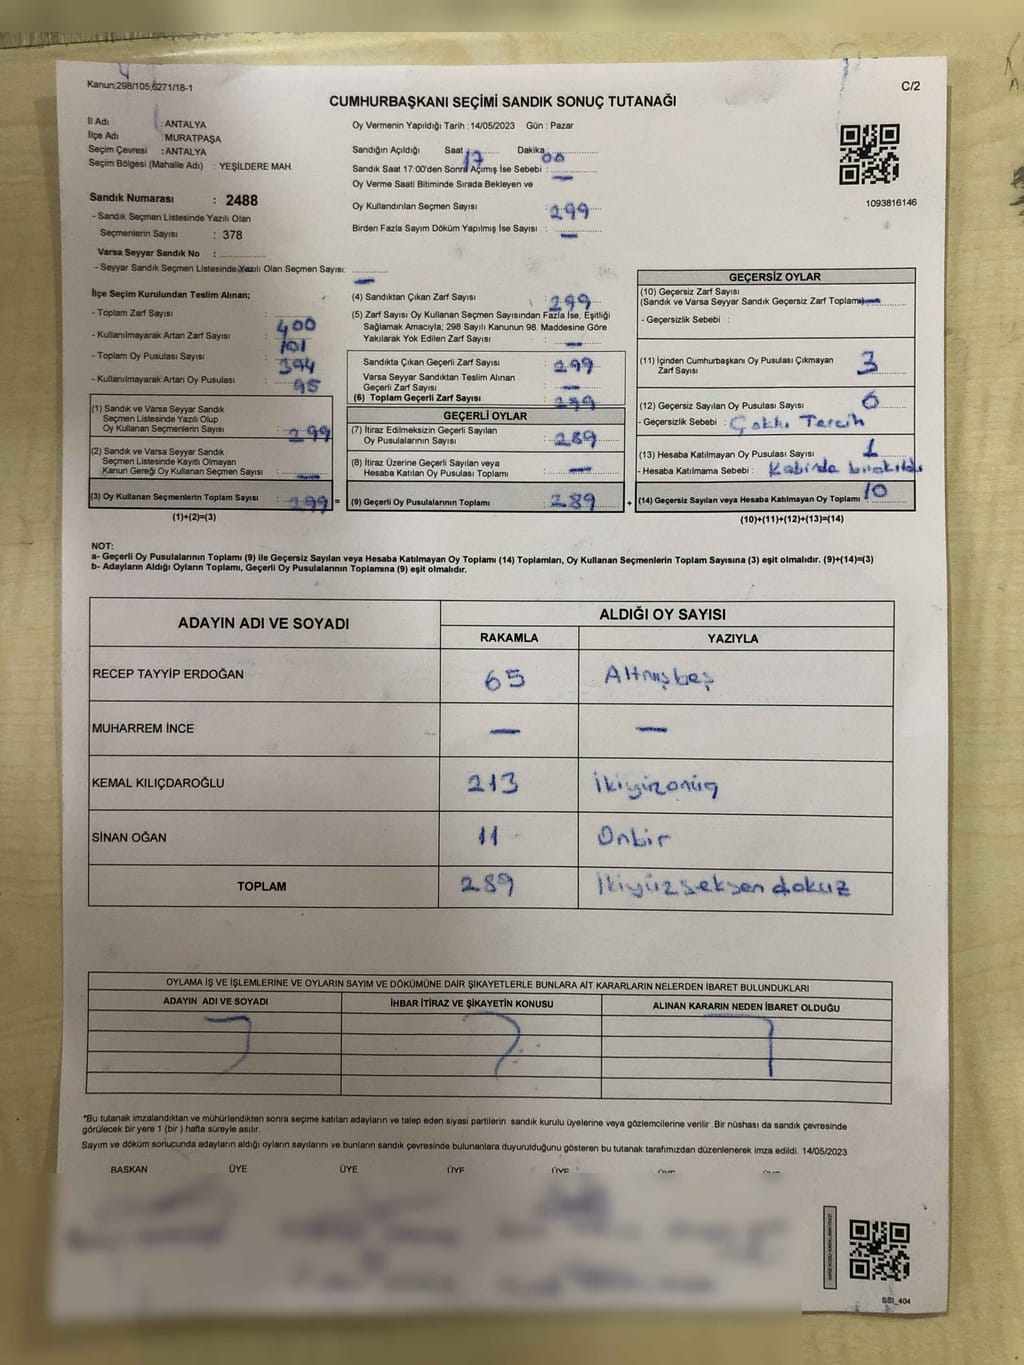 Kanun;298/105;6271/18-1
C/2
CUMHURBAŞKANI SEÇİMİ SANDIK SONUÇ TUTANAĞI
İl Adı : ANTALYA
İlçe Adı : MURATPAŞA
Seçim Çevresi : ANTALYA
Seçim Bölgesi (Mahalle Adı) : YEŞİLDERE MAH.
Sandık Numarası : 2488
- Sandık Seçmen Listesinde Yazılı Olan
Seçmenlerin Sayısı : 378
Varsa Seyyar Sandık No :
- Seyyar Sandık Seçmen Listesinde Yazılı Olan Seçmen Sayısı: —
Oy Vermenin Yapıldığı Tarih : 14/05/2023 Gün : Pazar
Sandığın Açıldığı Saat : 17 Dakika : 00
Sandık Saat 17:00'den Sonra Açımış İse Sebebi : —
Oy Verme Saati Bitiminde Sırada Bekleyen ve
Oy Kullandırılan Seçmen Sayısı : 299
Birden Fazla Sayım Döküm Yapılmış İse Sayısı : —
1093816146
İlçe Seçim Kurulundan Teslim Alınan;
- Toplam Zarf Sayısı : 400
- Kullanılmayarak Artan Zarf Sayısı : 101
- Toplam Oy Pusulası Sayısı : 394
- Kullanılmayarak Artan Oy Pusulası : 95
(1) Sandık ve Varsa Seyyar Sandık
Seçmen Listesinde Yazılı Olup
Oy Kullanan Seçmenlerin Sayısı : 299
(2) Sandık ve Varsa Seyyar Sandık
Seçmen Listesinde Kayıtlı Olmayan
Kanun Gereği Oy Kullanan Seçmen Sayısı : —
(3) Oy Kullanan Seçmenlerin Toplam Sayısı : 299 =
(1)+(2)=(3)
(4) Sandıktan Çıkan Zarf Sayısı : 299
(5) Zarf Sayısı Oy Kullanan Seçmen Sayısından Fazla İse, Eşitliği
Sağlamak Amacıyla; 298 Sayılı Kanunun 98. Maddesine Göre
Yakılarak Yok Edilen Zarf Sayısı : —
Sandıkta Çıkan Geçerli Zarf Sayısı : 299
Varsa Seyyar Sandıktan Teslim Alınan
Geçerli Zarf Sayısı : —
(6) Toplam Geçerli Zarf Sayısı : 299
GEÇERLİ OYLAR
(7) İtiraz Edilmeksizin Geçerli Sayılan
Oy Pusulalarının Sayısı : 289
(8) İtiraz Üzerine Geçerli Sayılan veya
Hesaba Katılan Oy Pusulası Toplamı : —
(9) Geçerli Oy Pusulalarının Toplamı : 289 +
GEÇERSİZ OYLAR
(10) Geçersiz Zarf Sayısı
(Sandık ve Varsa Seyyar Sandık Geçersiz Zarf Toplamı) —
- Geçersizlik Sebebi :
(11) İçinden Cumhurbaşkanı Oy Pusulası Çıkmayan
Zarf Sayısı : 3
(12) Geçersiz Sayılan Oy Pusulası Sayısı : 6
- Geçersizlik Sebebi : Çoklu Tercih
(13) Hesaba Katılmayan Oy Pusulası Sayısı : 1
- Hesaba Katılmama Sebebi : Kabinde bırakıldı
(14) Geçersiz Sayılan veya Hesaba Katılmayan Oy Toplamı : 10
(10)+(11)+(12)+(13)=(14)
NOT:
a- Geçerli Oy Pusulalarının Toplamı (9) ile Geçersiz Sayılan veya Hesaba Katılmayan Oy Toplamı (14) Toplamları, Oy Kullanan Seçmenlerin Toplam Sayısına (3) eşit olmalıdır. (9)+(14)=(3)
b- Adayların Aldığı Oyların Toplamı, Geçerli Oy Pusulalarının Toplamına (9) eşit olmalıdır.
ADAYIN ADI VE SOYADI
ALDIĞI OY SAYISI
RAKAMLA YAZIYLA
RECEP TAYYİP ERDOĞAN 65 Altmışbeş
MUHARREM İNCE — —
KEMAL KILIÇDAROĞLU 213 İkiyüzonüç
SİNAN OĞAN 11 Onbir
TOPLAM 289 İkiyüzseksendokuz
OYLAMA İŞ VE İŞLEMLERİNE VE OYLARIN SAYIM VE DÖKÜMÜNE DAİR ŞİKAYETLERLE BUNLARA AİT KARARLARIN NELERDEN İBARET BULUNDUKLARI
ADAYIN ADI VE SOYADI İHBAR İTİRAZ VE ŞİKAYETİN KONUSU ALINAN KARARIN NEDEN İBARET OLDUĞU
*Bu tutanak imzalandıktan ve mühürlendikten sonra seçime katılan adayların ve talep eden siyasi partilerin sandık kurulu üyelerine veya gözlemcilerine verilir .Bir nüshası da sandık çevresinde
görülecek bir yere 1 (bir ) hafta süreyle asılır.
Sayım ve döküm sonucunda adayların aldığı oyların sayılarını ve bunların sandık çevresinde bulunanlara duyurulduğunu gösteren bu tutanak tarafımızdan düzenlenerek imza edildi. 14/05/2023
BAŞKAN ÜYE ÜYE ÜYE ÜYE
SS1_404